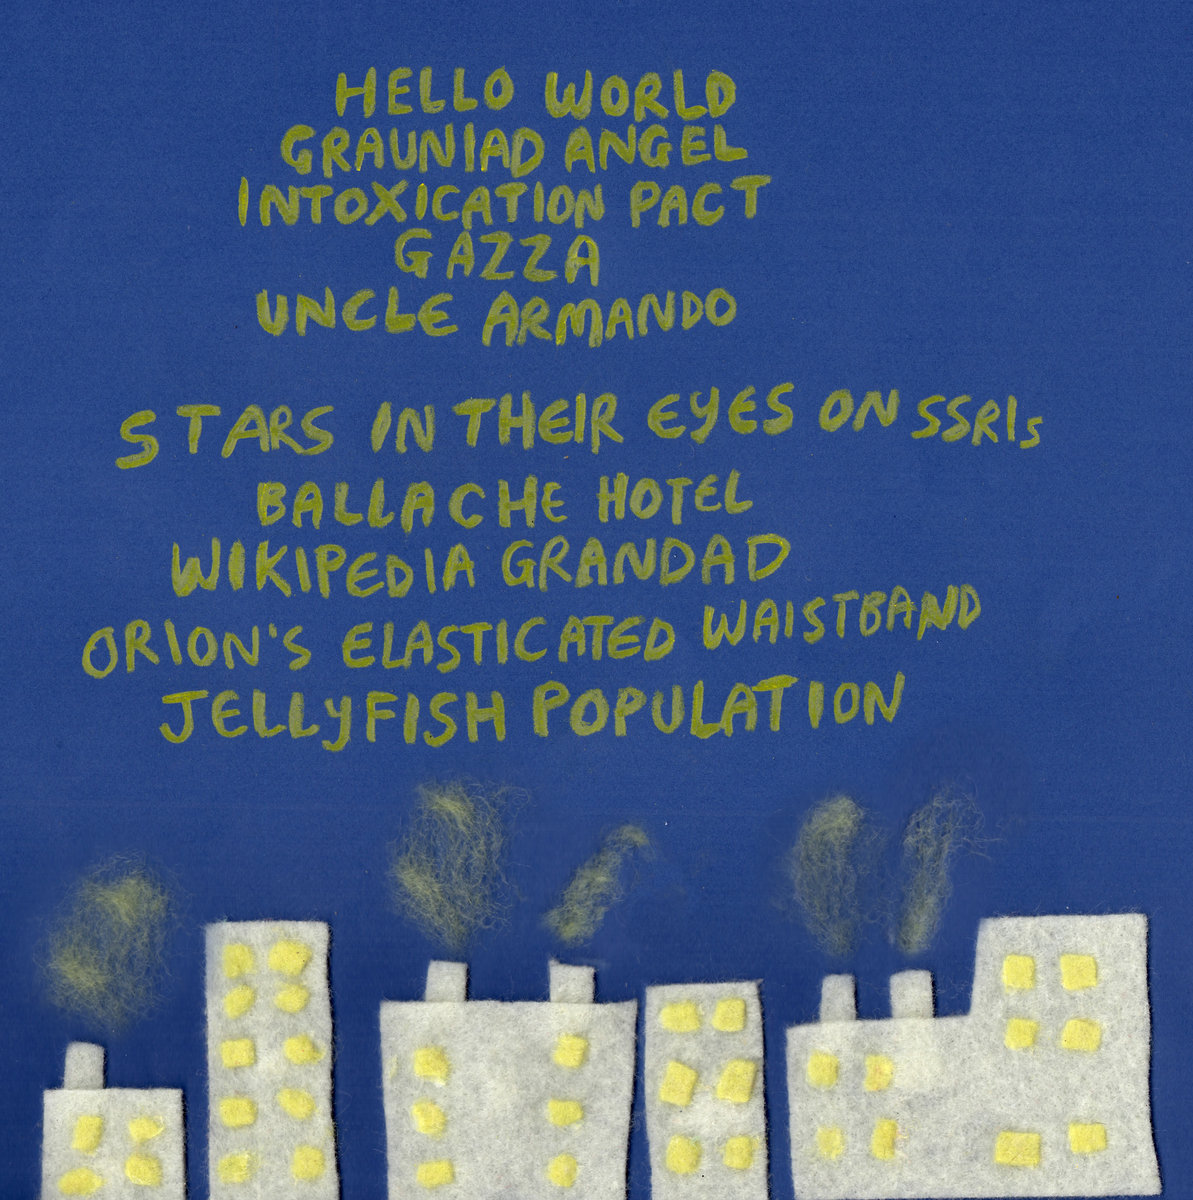 HELLO WORLD
GRAUNIAD ANGEL
INTOXICATION PACT
GAZZA
UNCLE ARMANDO
STARS IN THEIR EYES ON SSRIs
BALLACHE HOTEL
WIKIPEDIA GRANDAD
ORION'S ELASTICATED WAISTBAND
JELLYFISH POPULATION